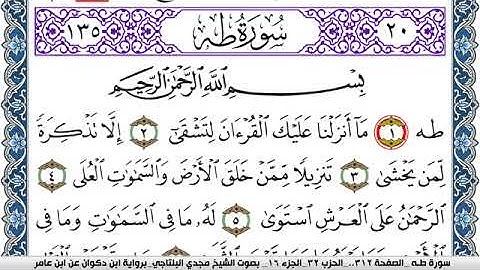 ٢٠ سُورَةُ طه ١٣٥
بِسْمِ اللَّهِ الرَّحْمَٰنِ الرَّحِيمِ
طه ١ مَا أَنزَلْنَا عَلَيْكَ الْقُرْءَانَ لِتَشْقَىٰ ٢ إِلَّا تَذْكِرَةً
لِّمَن يَخْشَىٰ ٣ تَنزِيلًا مِّمَّنْ خَلَقَ الْأَرْضَ وَالسَّمَٰوَٰتِ الْعُلَى ٤
الرَّحْمَٰنُ عَلَى الْعَرْشِ اسْتَوَىٰ ٥ لَهُ مَا فِي السَّمَٰوَٰتِ وَمَا فِي
سورة طـه_الصفحة ٣١٢_ الحزب ٣٢_الجزء ١٦_ بصوت الشيخ مجدي البلتاجي_برواية ابن ذكوان عن ابن عامر